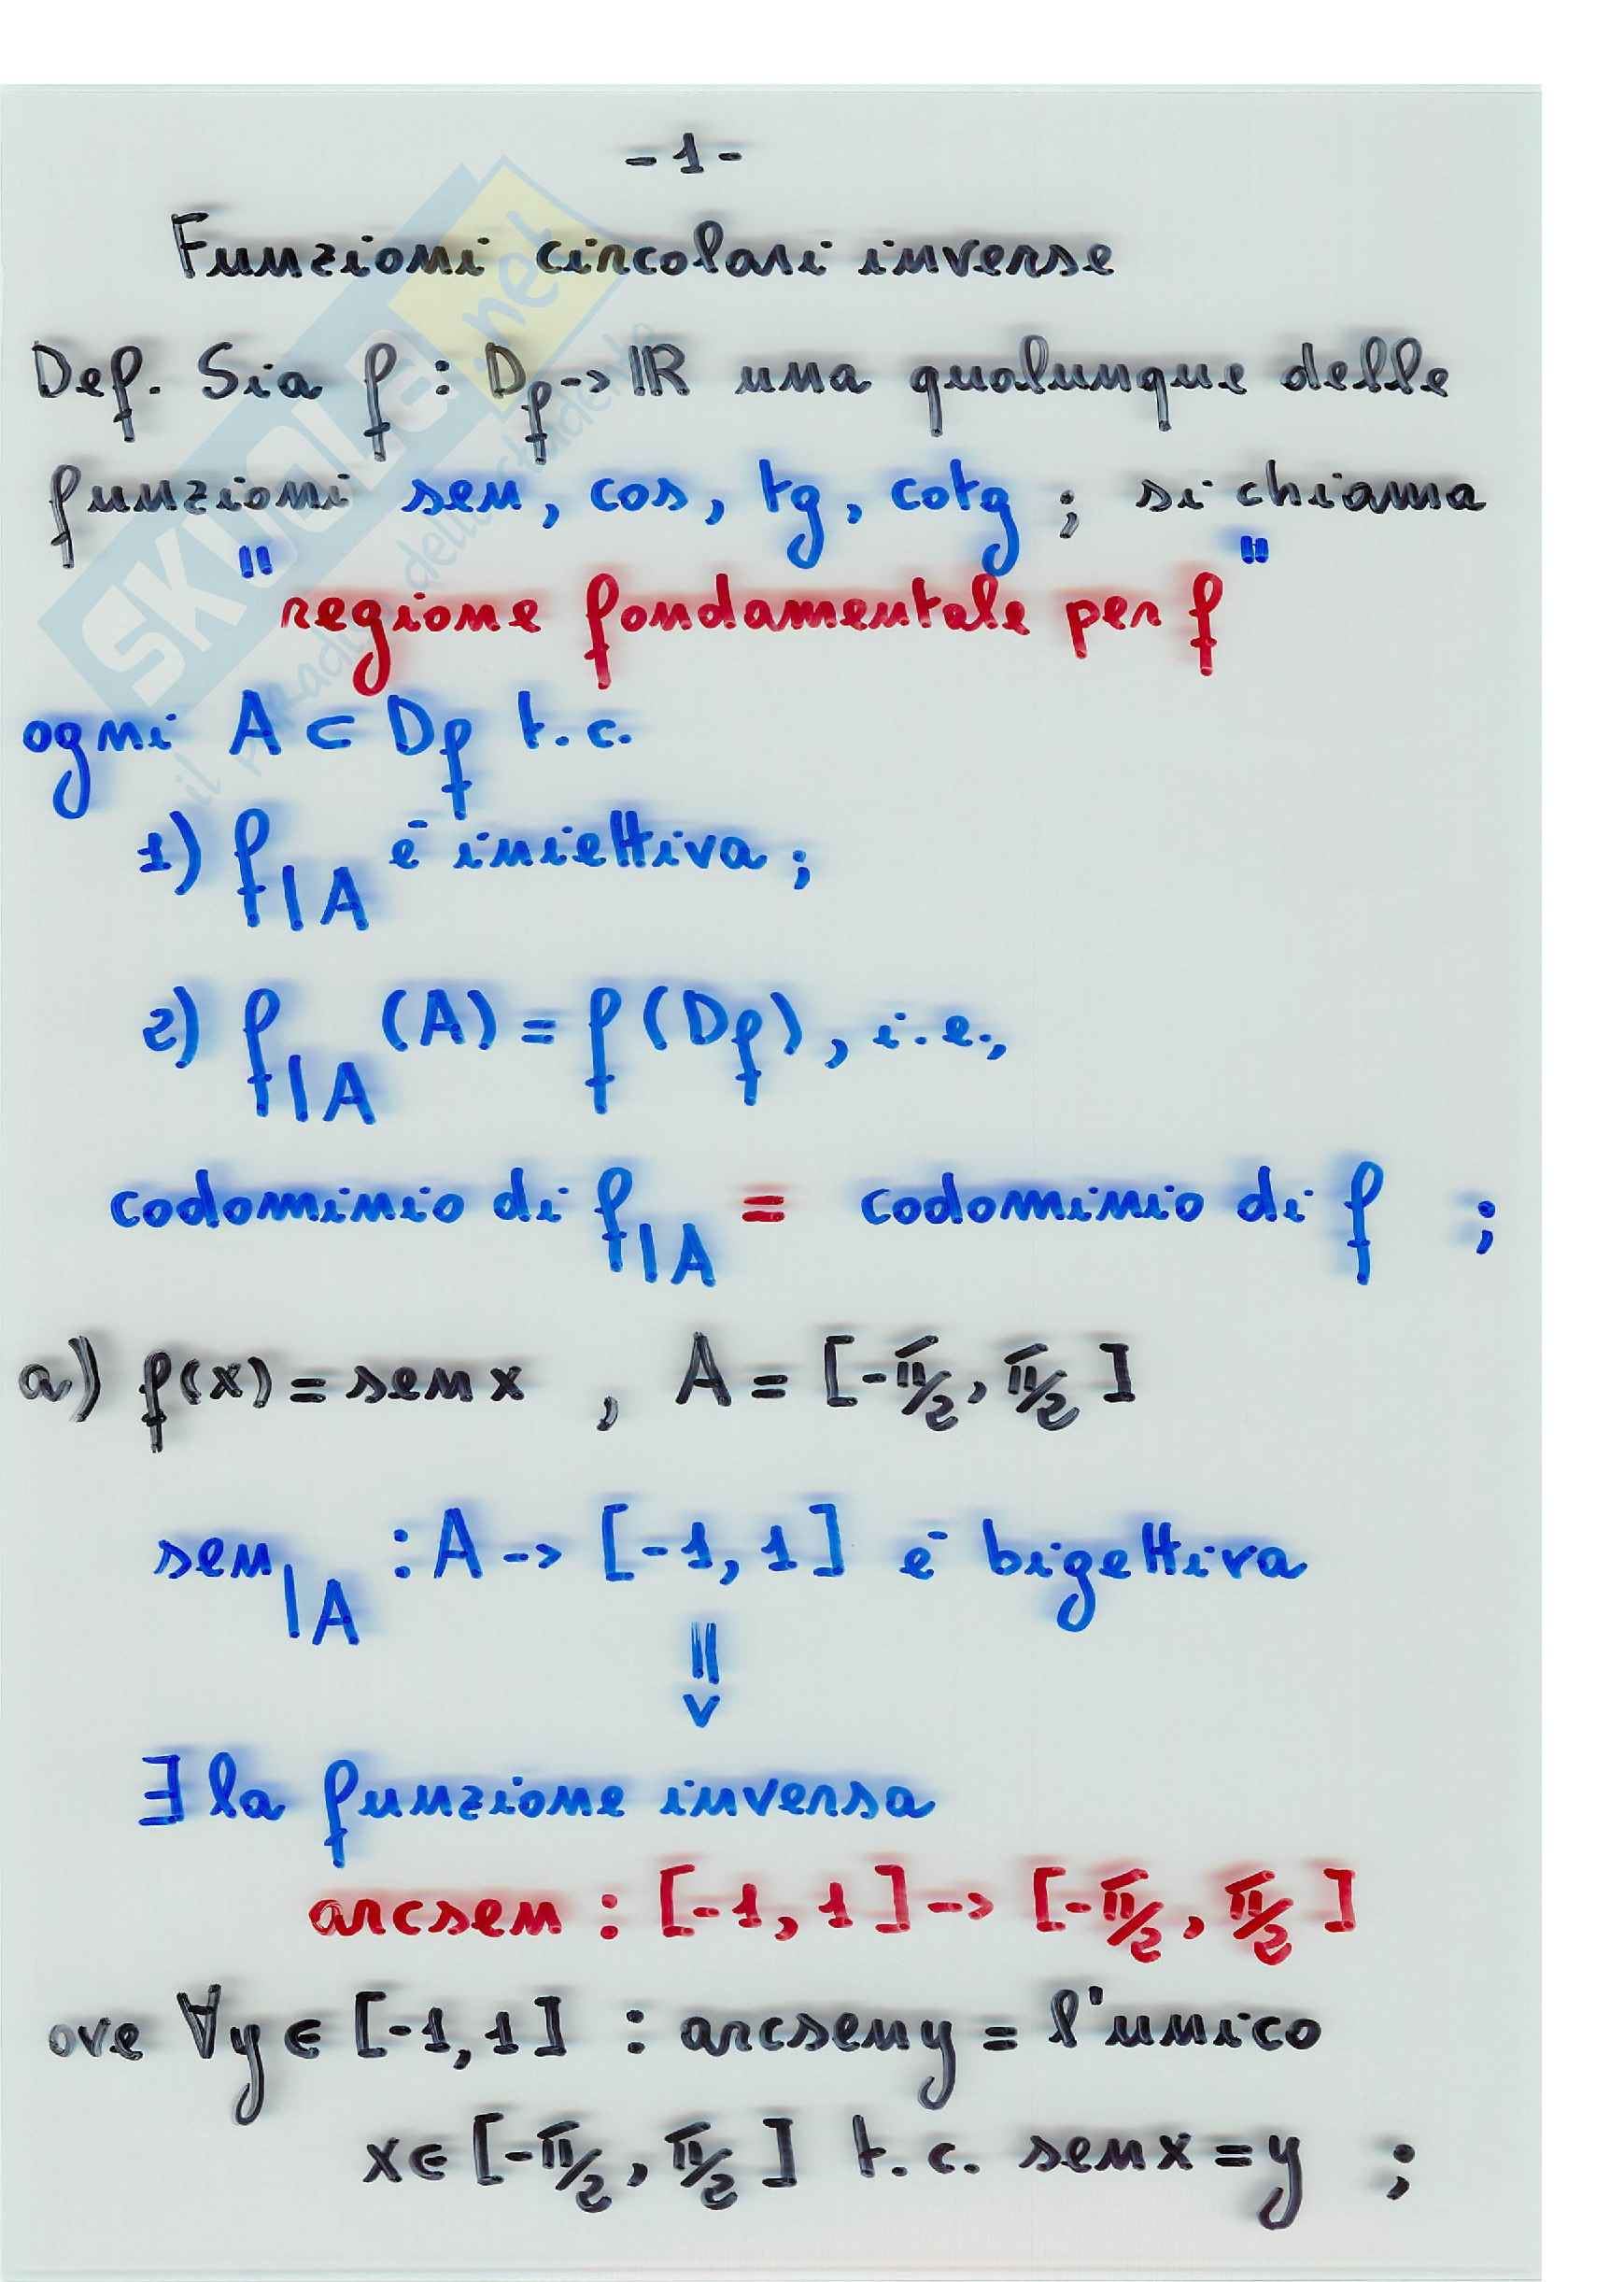 - 1 -
Funzioni circolari inverse
Def. Sia f : Df -> ℝ una qualunque delle
funzioni sen, cos, tg, cotg ; si chiama
" regione fondamentale per f "
ogni A ⊂ Df t.c.
1) f|A è iniettiva ;
2) f|A (A) = f (Df) , i.e.,
codominio di f|A = codominio di f ;
a) f(x) = sen x , A = [-π/2, π/2]
sen|A : A -> [-1, 1] è bigettiva
⇓
∃ la funzione inversa
arcsen : [-1, 1] -> [-π/2, π/2]
ove ∀y ∈ [-1, 1] : arcsen y = l'unico
x ∈ [-π/2, π/2] t.c. sen x = y ;
SKUOLA.net
il paradiso dello studente